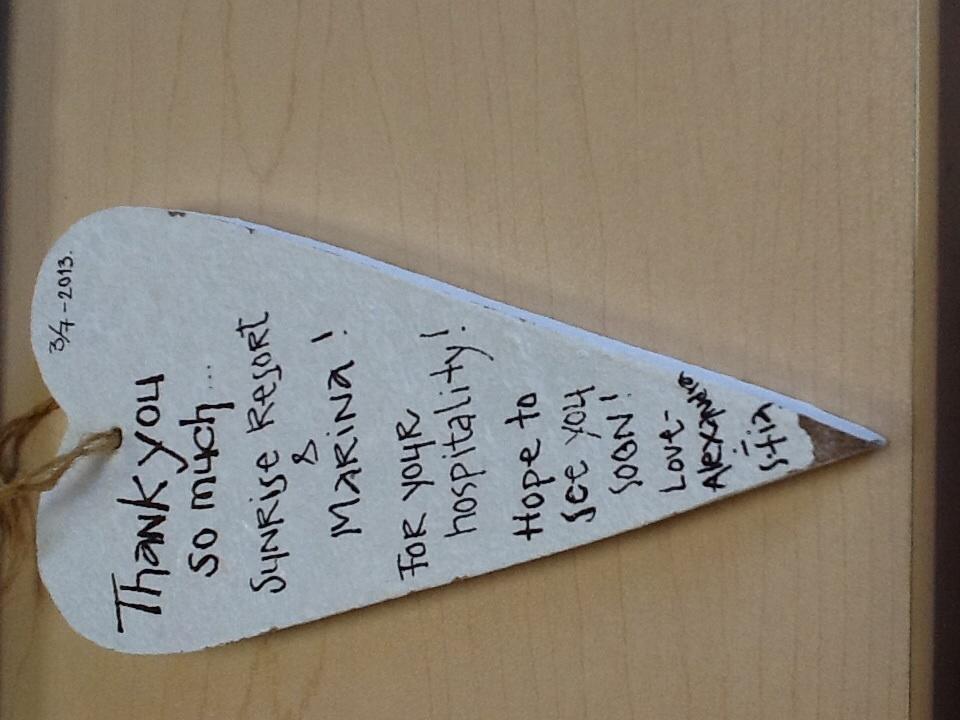 3/7-2013.
Thank you
so much...
Sunrise Resort
&
Marina!
For your
hospitality!
Hope to
see you
soon!
Love-
Alexandra
-
Stin.